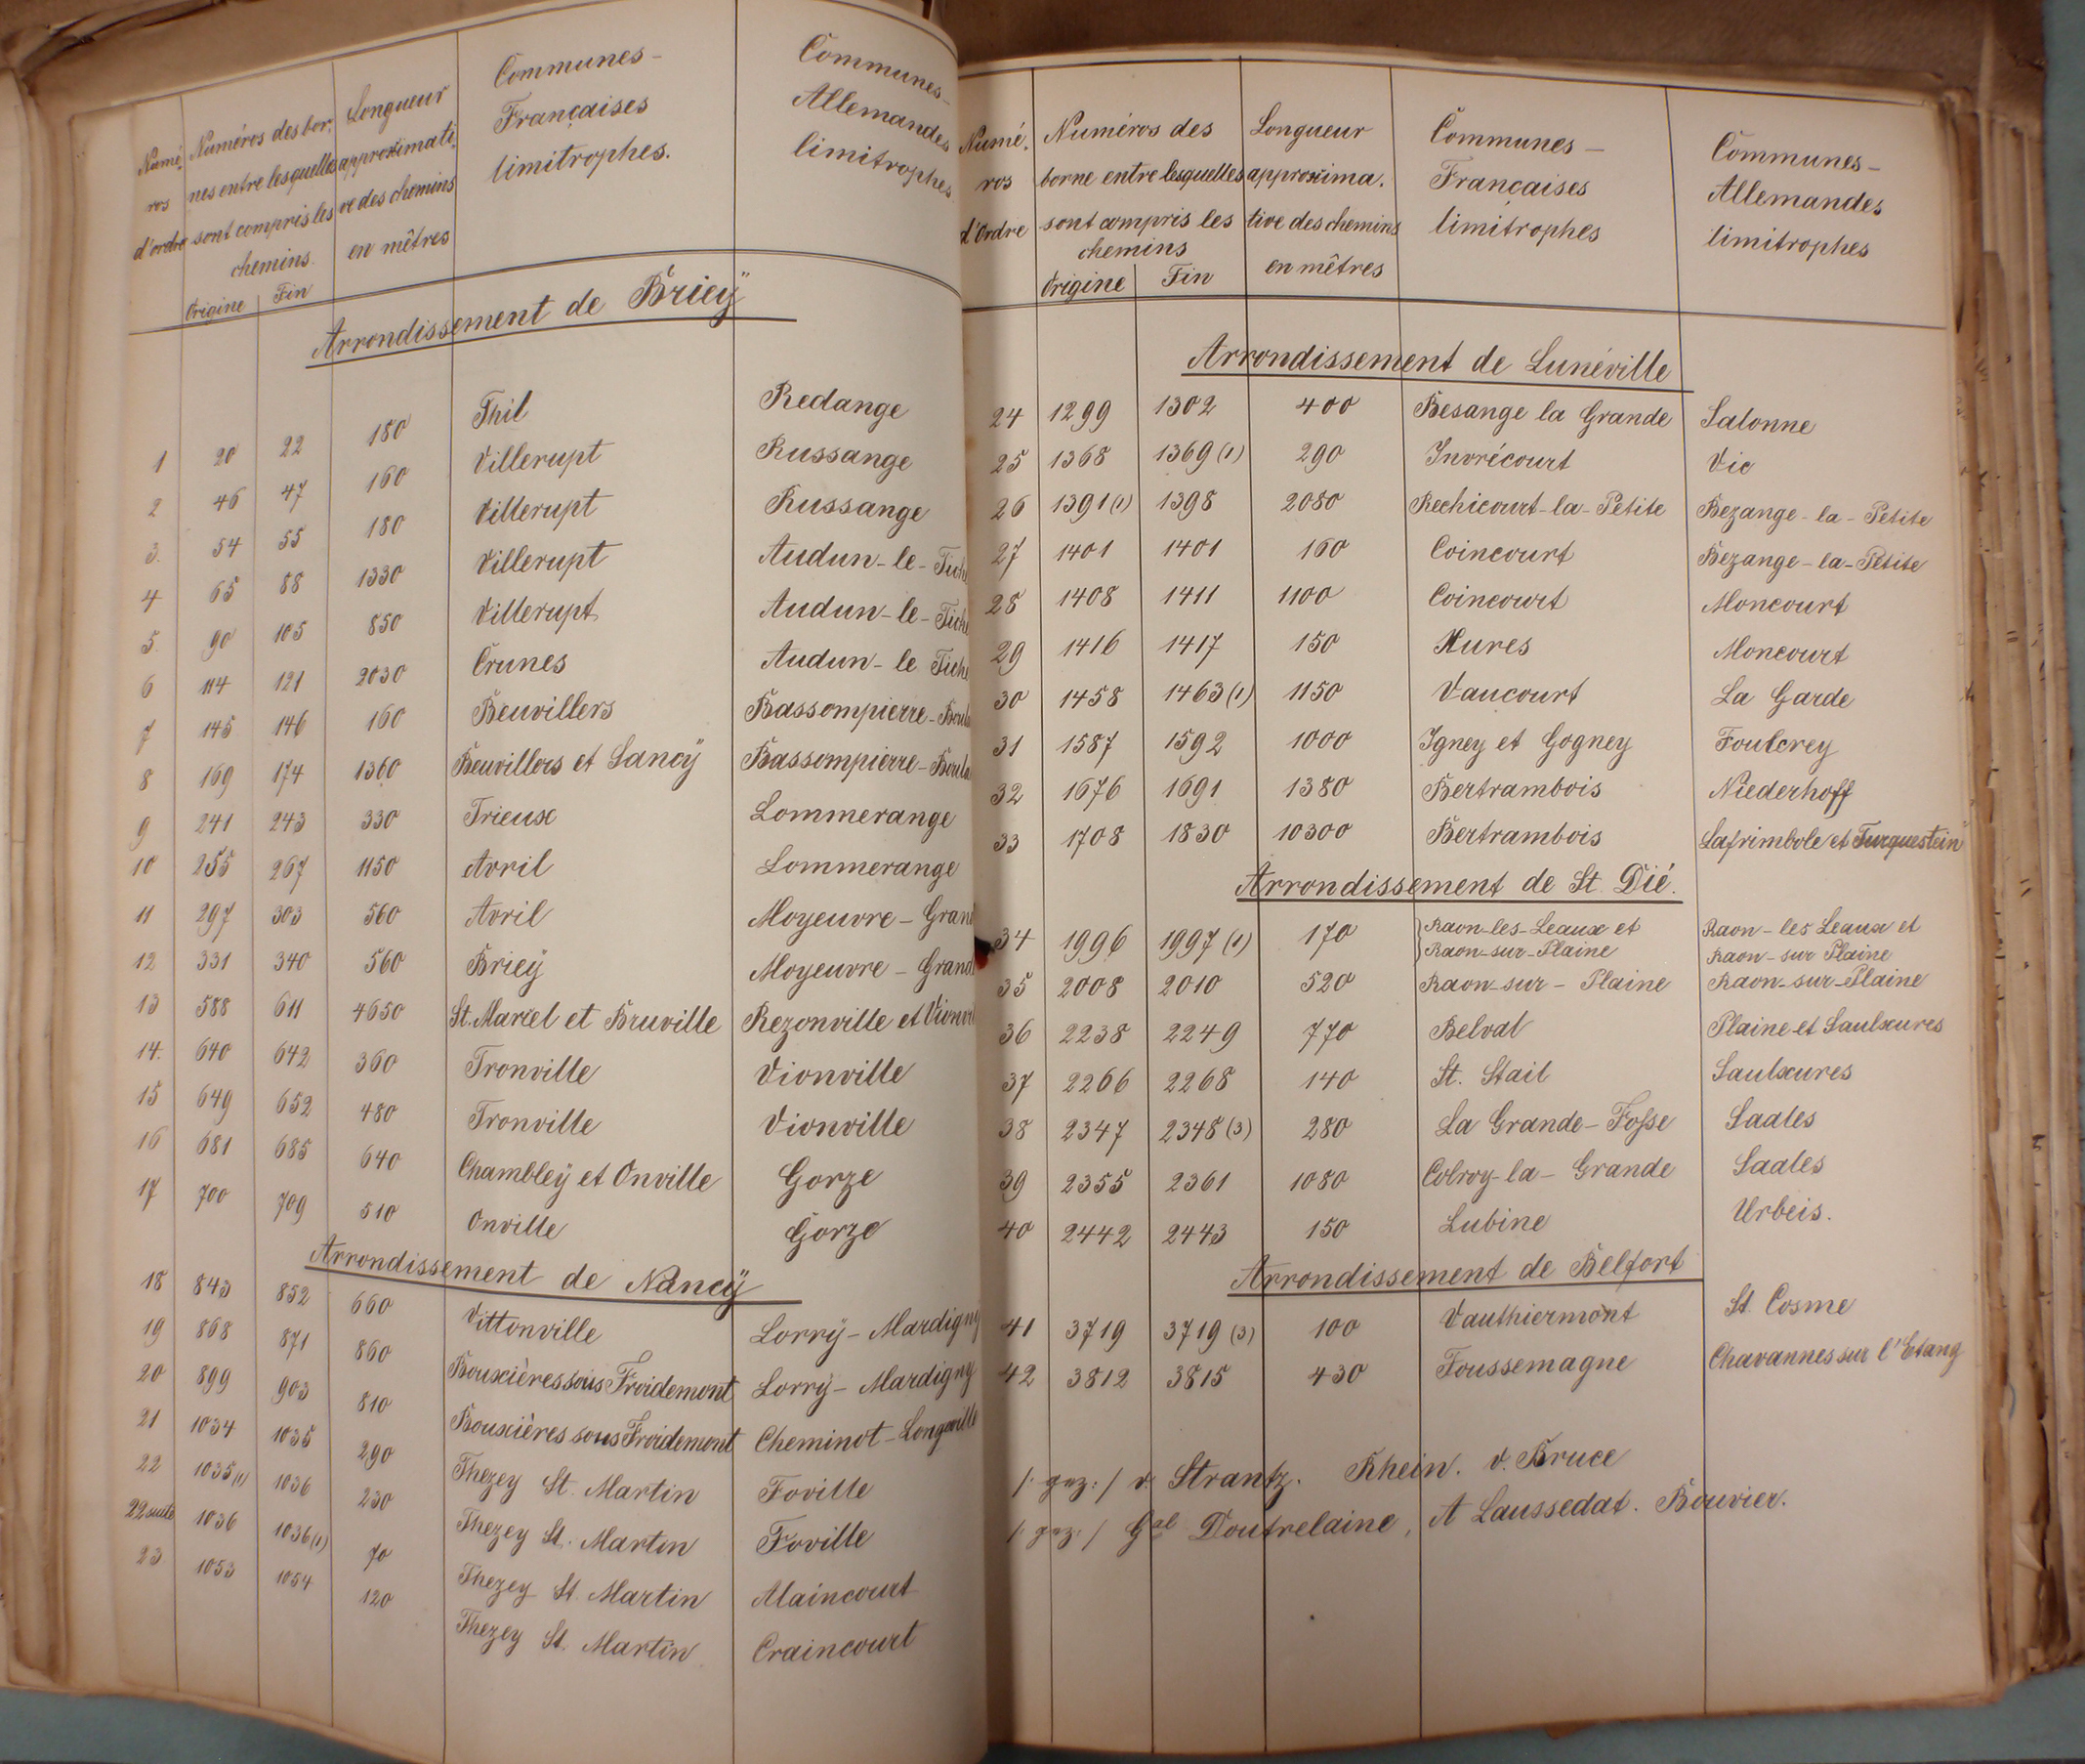 Numé- Numéros des bor- Longueur Communes- Communes-
ros nes entre lesquelles approximati- Françaises Allemandes
d'ordre sont compris les ve des chemins limitrophes. limitrophes
chemins. en mêtres
Origine Fin
Arrondissement de Briey
1 20 22 180 Thil Redange
2 46 47 160 Villerupt Russange
3. 54 55 180 Villerupt Russange
4 65 88 1330 Villerupt Audun-le-Tiche
5. 90 105 850 Villerupt Audun-le-Tiche
6 114 121 2030 Crunes Audun-le Tiche
7 145 146 160 Beuvillers Bassompierre-Boula
8 169 174 1360 Beuvillers et Sancÿ Bassompierre-Boula
9 241 243 330 Trieux Lommerange
10 255 267 1150 Avril Lommerange
11 297 303 560 Avril Moyeuvre-Grand
12 331 340 560 Briey Moyeuvre-Grand
13 588 611 4650 St. Marcel et Bruville Rezonville et Vionvil
14. 640 642 360 Tronville Vionville
15 649 652 480 Tronville Vionville
16 681 685 640 Chambley et Onville Gorze
17 700 709 510 Onville Gorze
Arrondissement de Nancÿ
18 843 852 660 Vittonville Lorrÿ-Mardigny
19 868 871 860 Bouxières sous Froidemont Lorrÿ-Mardigny
20 899 903 810 Bouxières sous Froidemont Cheminot-Longeville
21 1034 1035 290 Thezey St. Martin Foville
22 1035(1) 1036 230 Thezey St. Martin Foville
22 suite 1036 1036(1) 70 Thezey St. Martin Alaincourt
23 1053 1054 120 Thezey St. Martin Craincourt
Numé- Numéros des Longueur Communes- Communes-
ros borne entre lesquelles approxima- Françaises Allemandes
d'Ordre sont compris les tive des chemins limitrophes limitrophes
chemins en mêtres
Origine Fin
Arrondissement de Lunéville
24 1299 1302 400 Besange la Grande Salonne
25 1368 1369(1) 290 Invrécourt Vic
26 1391(1) 1398 2080 Rechicourt-la-Petite Bezange-la-Petite
27 1401 1401 160 Coincourt Bezange-la-Petite
28 1408 1411 1100 Coincourt Moncourt
29 1416 1417 150 Xures Moncourt
30 1458 1463(1) 1150 Vaucourt La Garde
31 1587 1592 1000 Igney et Gogney Foulcrey
32 1676 1691 1380 Bertrambois Niederhoff
33 1708 1830 10300 Bertrambois Lafrimbole et Turquestein
Arrondissement de St. Dié.
34 1996 1997(1) 170 Raon-les-Leaux et Raon-les Leaux et
Raon-sur-Plaine Raon-sur Plaine
35 2008 2010 520 Raon-sur-Plaine Raon-sur-Plaine
36 2238 2249 770 Belval Plaine et Saulxures
37 2266 2268 140 St. Stail Saulxures
38 2347 2348(3) 280 La Grande-Fosse Saales
39 2355 2361 1080 Colroy-la-Grande Saales
40 2442 2443 150 Lubine Urbeis.
Arrondissement de Belfort
41 3719 3719(3) 100 Vauthiermont St. Cosme
42 3812 3815 430 Foussemagne Chavannes sur l'Etang
/: gez: / v. Strantz. Rhein. v. Bruce
/: gez: / Gal Doutrelaine, A Laussedat. Bouvier.